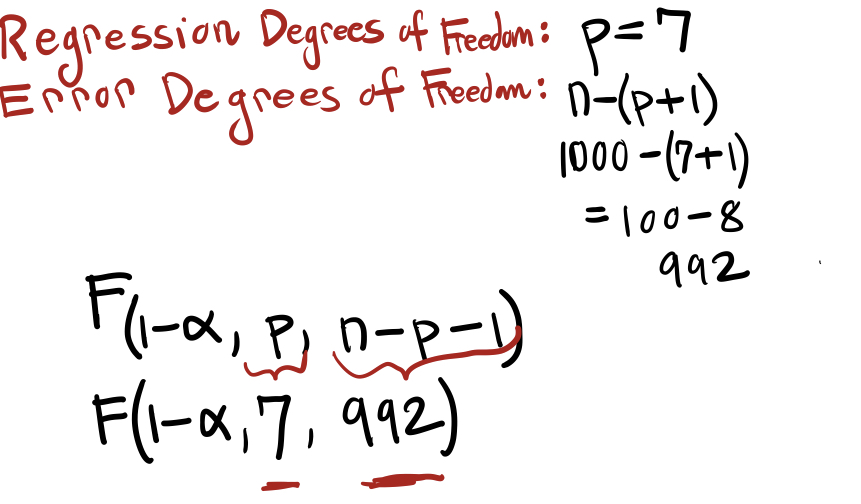 Regression Degrees of Freedom: p=7
Error Degrees of Freedom: n-(p+1)
1000-(7+1)
=100-8
992
F(1-α, p, n-p-1)
F(1-α, 7, 992)